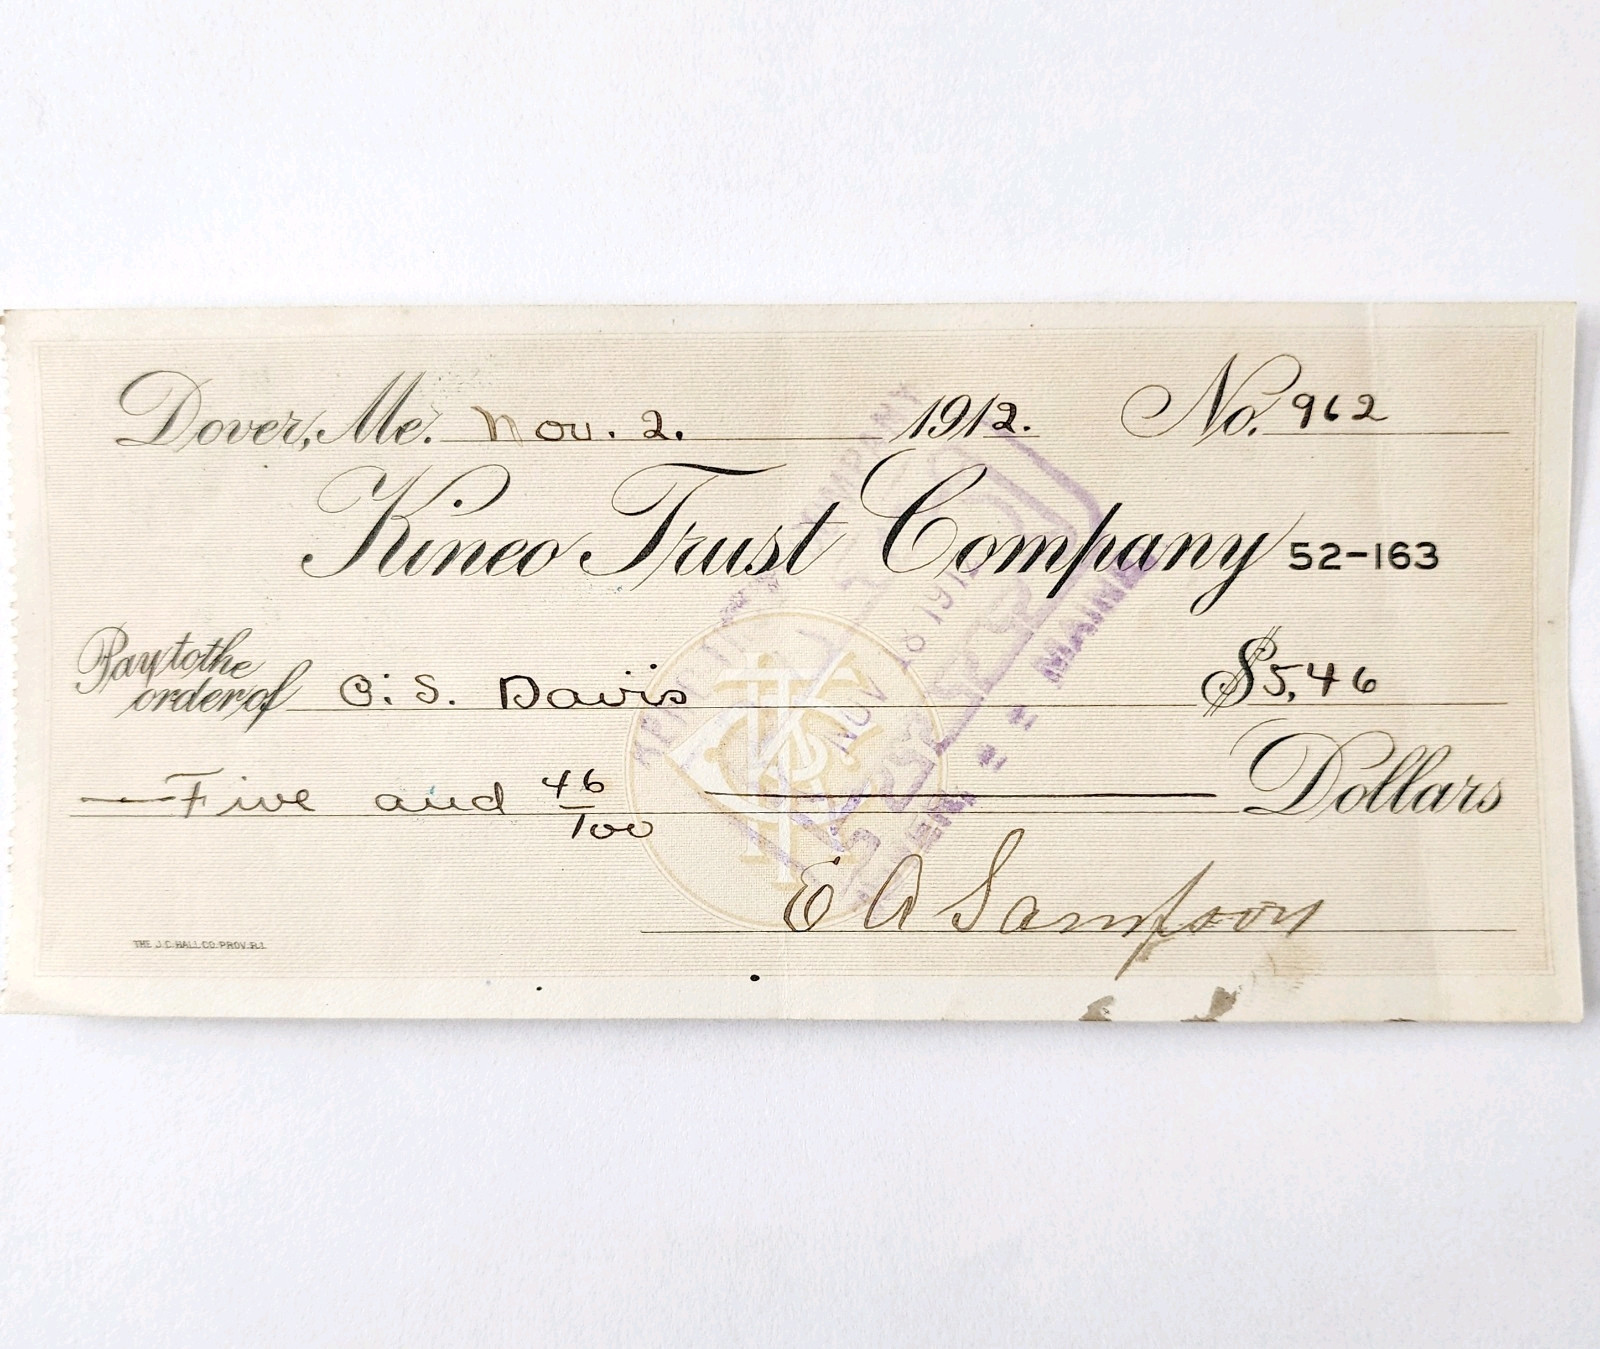 Dover, Me. Nov. 2. 1912. No. 962
Kineo Trust Company 52-163
Pay to the
order of C. S. Davis $5.46
Five and 46/100 Dollars
E A Sampson
THE J.C. HALL CO. PROV. R.I.
NOV 18 191
MAINE